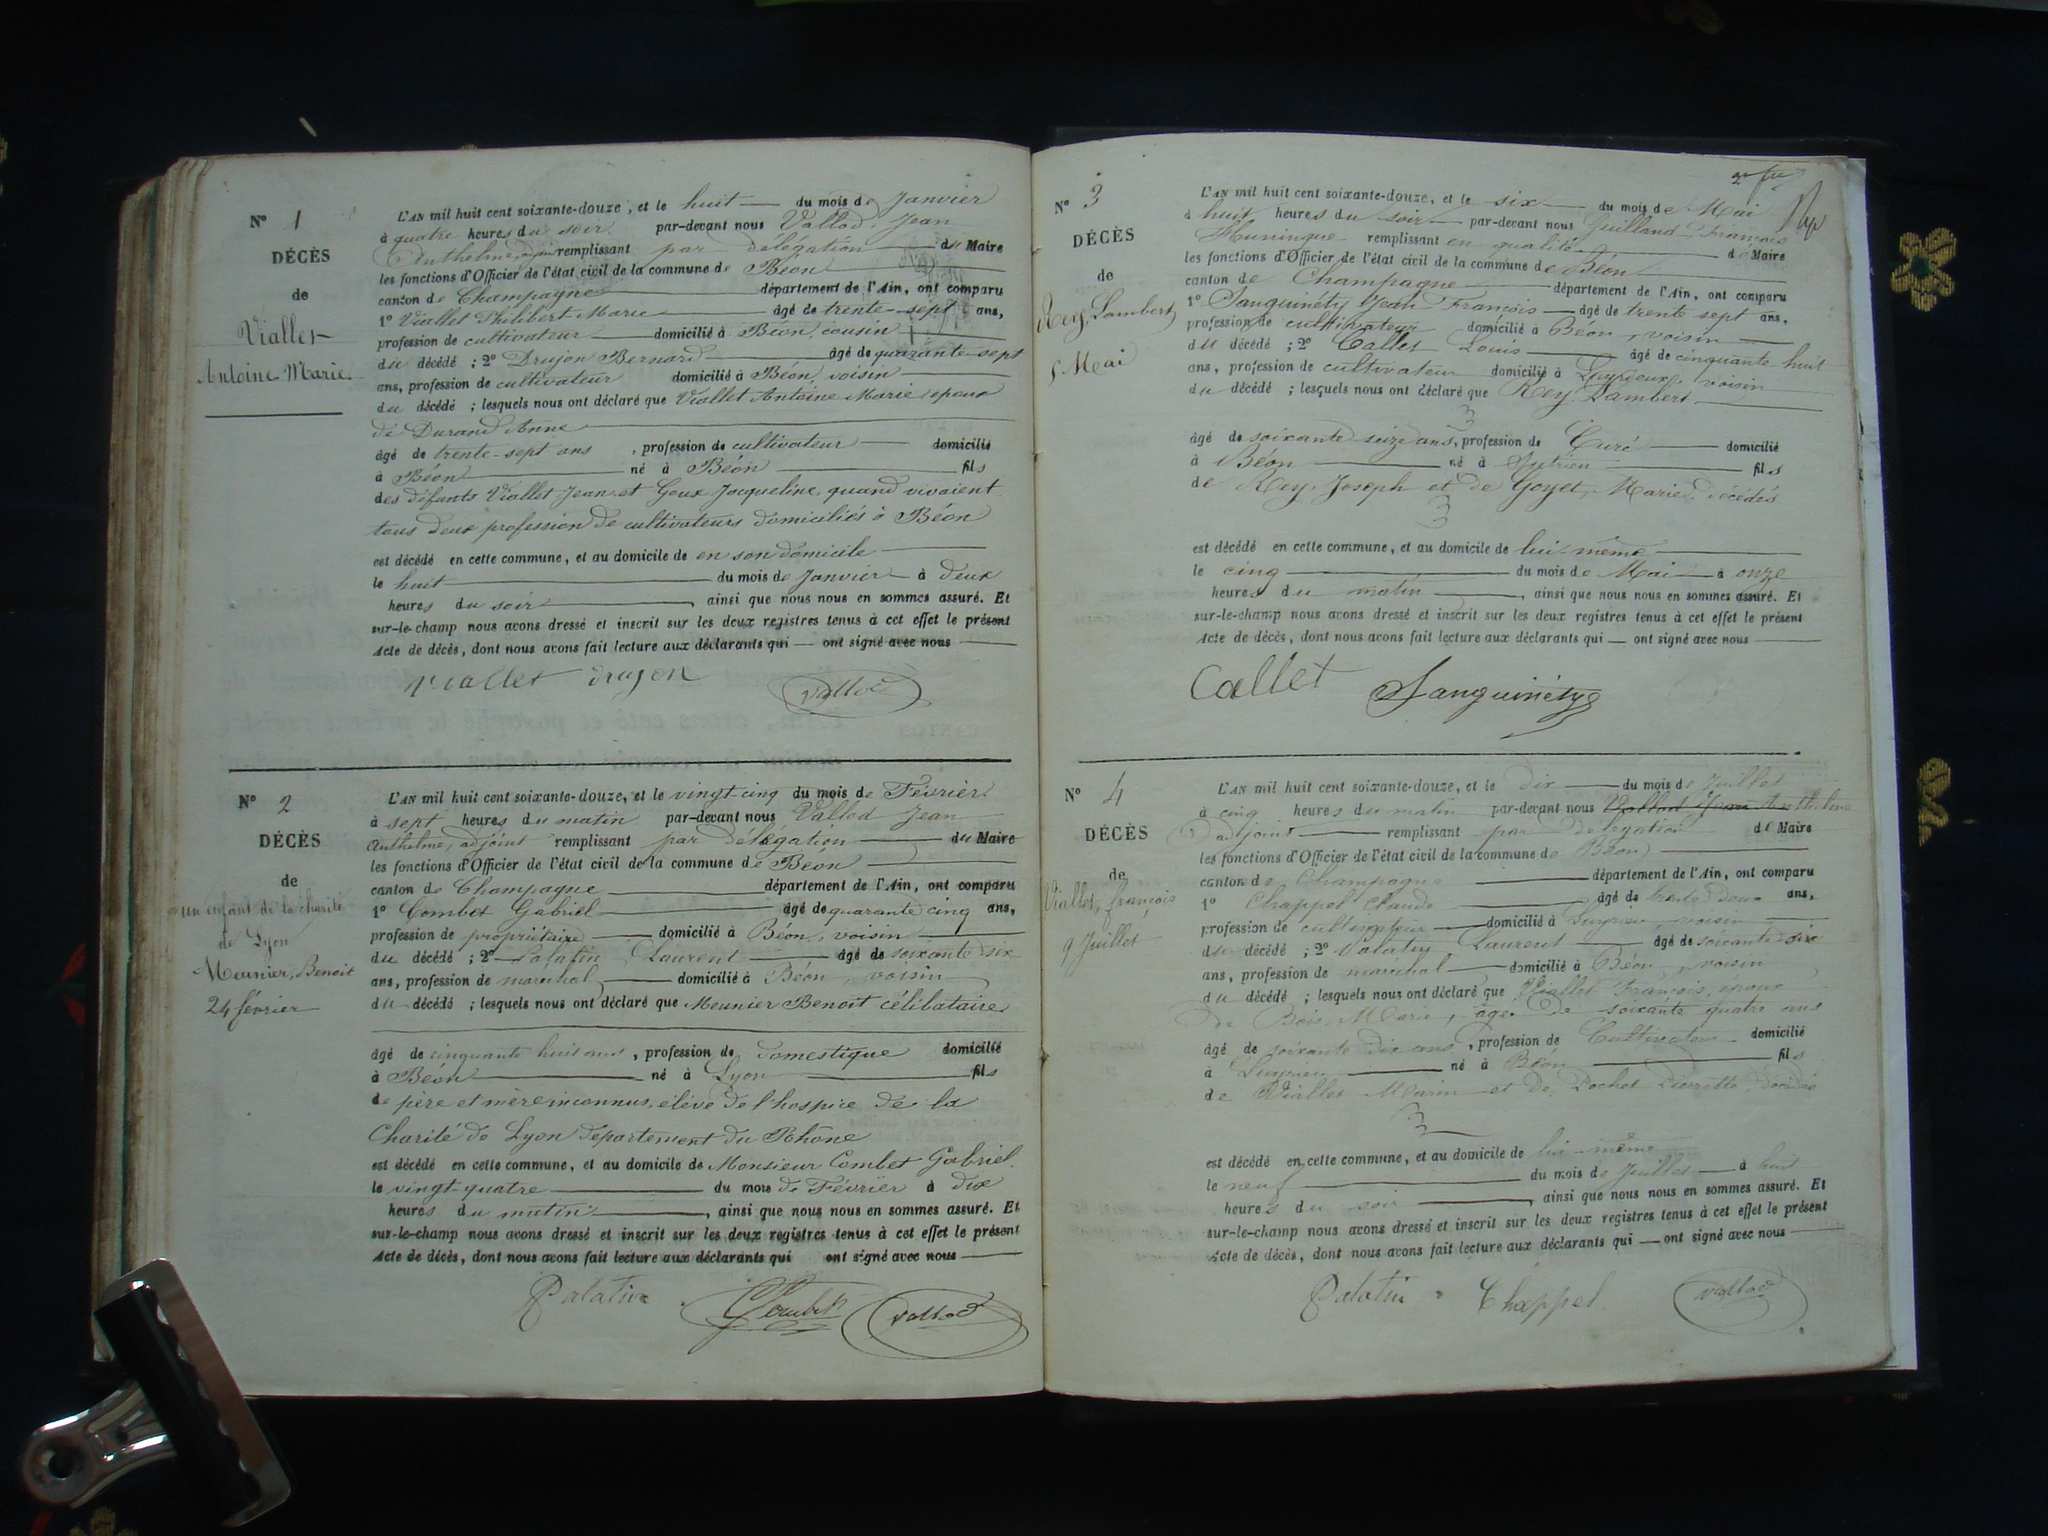 N° 1
DÉCÈS
de
Viallet
Antoine Marie
L'AN mil huit cent soixante-douze, et le huit du mois de Janvier
à quatre heures du soir par-devant nous Vallod Jean
Anthelme remplissant par délégation du Maire
les fonctions d'Officier de l'état civil de la commune de Béon
canton de Champagne département de l'Ain, ont comparu
1° Viallet Philibert Marie âgé de trente-sept ans,
profession de cultivateur domicilié à Béon, cousin
du décédé ; 2° Drujon Bernard âgé de quarante-sept
ans, profession de cultivateur domicilié à Béon, voisin
du décédé ; lesquels nous ont déclaré que Viallet Antoine Marie, époux
de Durand Anne
âgé de trente-sept ans, profession de cultivateur domicilié
à Béon né à Béon fils
des défunts Viallet Jean et Goux Jacqueline, quand vivaient
tous deux profession de cultivateurs domiciliés à Béon
est décédé en cette commune, et au domicile de en son domicile
le huit du mois de Janvier à deux
heures du soir, ainsi que nous nous en sommes assuré. Et
sur-le-champ nous avons dressé et inscrit sur les deux registres tenus à cet effet le présent
Acte de décès, dont nous avons fait lecture aux déclarants qui ont signé avec nous
Viallet Drujon Vallod
N° 2
DÉCÈS
de
un enfant de la charité
de Lyon
Meunier, Benoit
24 février
L'AN mil huit cent soixante-douze, et le vingt-cinq du mois de Février
à sept heures du matin par-devant nous Vallod Jean
Anthelme, adjoint remplissant par délégation du Maire
les fonctions d'Officier de l'état civil de la commune de Béon
canton de Champagne département de l'Ain, ont comparu
1° Combet Gabriel âgé de quarante cinq ans,
profession de propriétaire domicilié à Béon, voisin
du décédé ; 2° Palatin Laurent âgé de soixante six
ans, profession de maréchal domicilié à Béon, voisin
du décédé ; lesquels nous ont déclaré que Meunier Benoit célibataire
âgé de cinquante huit ans, profession de domestique domicilié
à Béon né à Lyon fils
de père et mère inconnus, élève de l'hospice de la
Charité de Lyon département du Rhône
est décédé en cette commune, et au domicile de Monsieur Combet Gabriel
le vingt-quatre du mois de Février à dix
heures du matin, ainsi que nous nous en sommes assuré. Et
sur-le-champ nous avons dressé et inscrit sur les deux registres tenus à cet effet le présent
Acte de décès, dont nous avons fait lecture aux déclarants qui ont signé avec nous
Palatin Combet Vallod
N° 3
DÉCÈS
de
Rey, Lambert
5 Mai
L'AN mil huit cent soixante-douze, et le six du mois de Mai
à huit heures du soir par-devant nous Guilland François
remplissant en qualité de Maire
les fonctions d'Officier de l'état civil de la commune de Béon
canton de Champagne département de l'Ain, ont comparu
1° Sanguinéty Jean François âgé de trente sept ans,
profession de cultivateur domicilié à Béon, voisin
du décédé ; 2° Callet Louis âgé de cinquante huit
ans, profession de cultivateur domicilié à Luyrieux, voisin
du décédé ; lesquels nous ont déclaré que Rey Lambert
âgé de soixante seize ans, profession de Curé domicilié
à Béon né à fils
de Rey Joseph et de Goyet, Marie, décédés
est décédé en cette commune, et au domicile de lui-même
le cinq du mois de Mai à onze
heures du matin, ainsi que nous nous en sommes assuré. Et
sur-le-champ nous avons dressé et inscrit sur les deux registres tenus à cet effet le présent
Acte de décès, dont nous avons fait lecture aux déclarants qui ont signé avec nous
Callet Sanguinéty
N° 4
DÉCÈS
de
Viallet, françois
9 Juillet
L'AN mil huit cent soixante-douze, et le dix du mois de Juillet
à cinq heures du matin par-devant nous Vallod Jean Anthelme
adjoint remplissant par délégation de Maire
les fonctions d'Officier de l'état civil de la commune de Béon
canton de Champagne département de l'Ain, ont comparu
1° Chappel Claude âgé de trente deux ans,
profession de cultivateur domicilié à Luyrieu, voisin
du décédé ; 2° Palatin Laurent âgé de soixante six
ans, profession de maréchal domicilié à Béon, voisin
du décédé ; lesquels nous ont déclaré que Viallet François, époux
de Bois Marie, âgée de soixante quatre ans
âgé de soixante dix ans, profession de Cultivateur domicilié
à Luyrieu né à Béon fils
de Viallet Marin et de Pochet Pierrette, décédés
est décédé en cette commune, et au domicile de lui-même
le neuf du mois de Juillet à huit
heures du soir, ainsi que nous nous en sommes assuré. Et
sur-le-champ nous avons dressé et inscrit sur les deux registres tenus à cet effet le présent
Acte de décès, dont nous avons fait lecture aux déclarants qui ont signé avec nous
Palatin Chappel Vallod